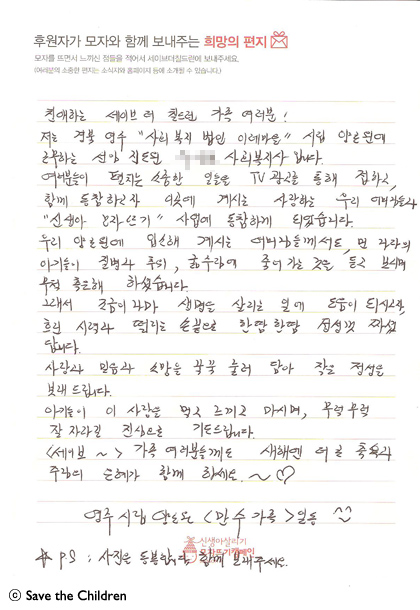 후원자가 모자와 함께 보내주는 희망의 편지
모자를 뜨면서 느끼신 점들을 적어서 세이브더칠드런에 보내주세요.
(여러분의 소중한 편지는 소식지와 홈페이지 등에 소개될 수 있습니다.)
친애하는 세이브 더 칠드런 가족 여러분!
저는 경북 영주 "사회복지 법인 이레마을" 시립 양로원에
근무하는 선임 생활 사회복지사 입니다.
여러분들이 펼치는 소중한 일들을 TV 광고를 통해 접하고,
함께 동참하고자 이곳에 계시는 사랑하는 우리 어르신들과
"신생아 모자뜨기" 사업에 동참하게 되었습니다.
우리 양로원에 입소해 계시는 어르신들께서도, 먼 나라의
아기들이 질병과 추위, 저체온에 죽어 가는 것을 듣고 보시며
무척 슬퍼해 하셨습니다.
그래서 조금이나마 생명을 살리는 일에 도움이 되시고자,
흐린 시력과 떨리는 손끝으로 한땀 한땀 정성껏 짜셨
답니다.
사랑과 믿음과 소망을 꾹꾹 눌러 담아 작은 정성을
보내 드립니다.
아기들이 이 사랑을 먹고 느끼고 마시며, 무럭무럭
잘 자라길 진심으로 기도드립니다.
<세이브 ~> 가족 여러분들께도 새해엔 더 큰 축복과
주님의 은혜가 함께 하세요. ~ ♡
영주 시립 양로원 <만수 가족> 일동 ^^
신생아살리기
모자뜨기캠페인
* PS : 사진을 동봉합니다. 함께 보내주세요.
ⓒ Save the Children